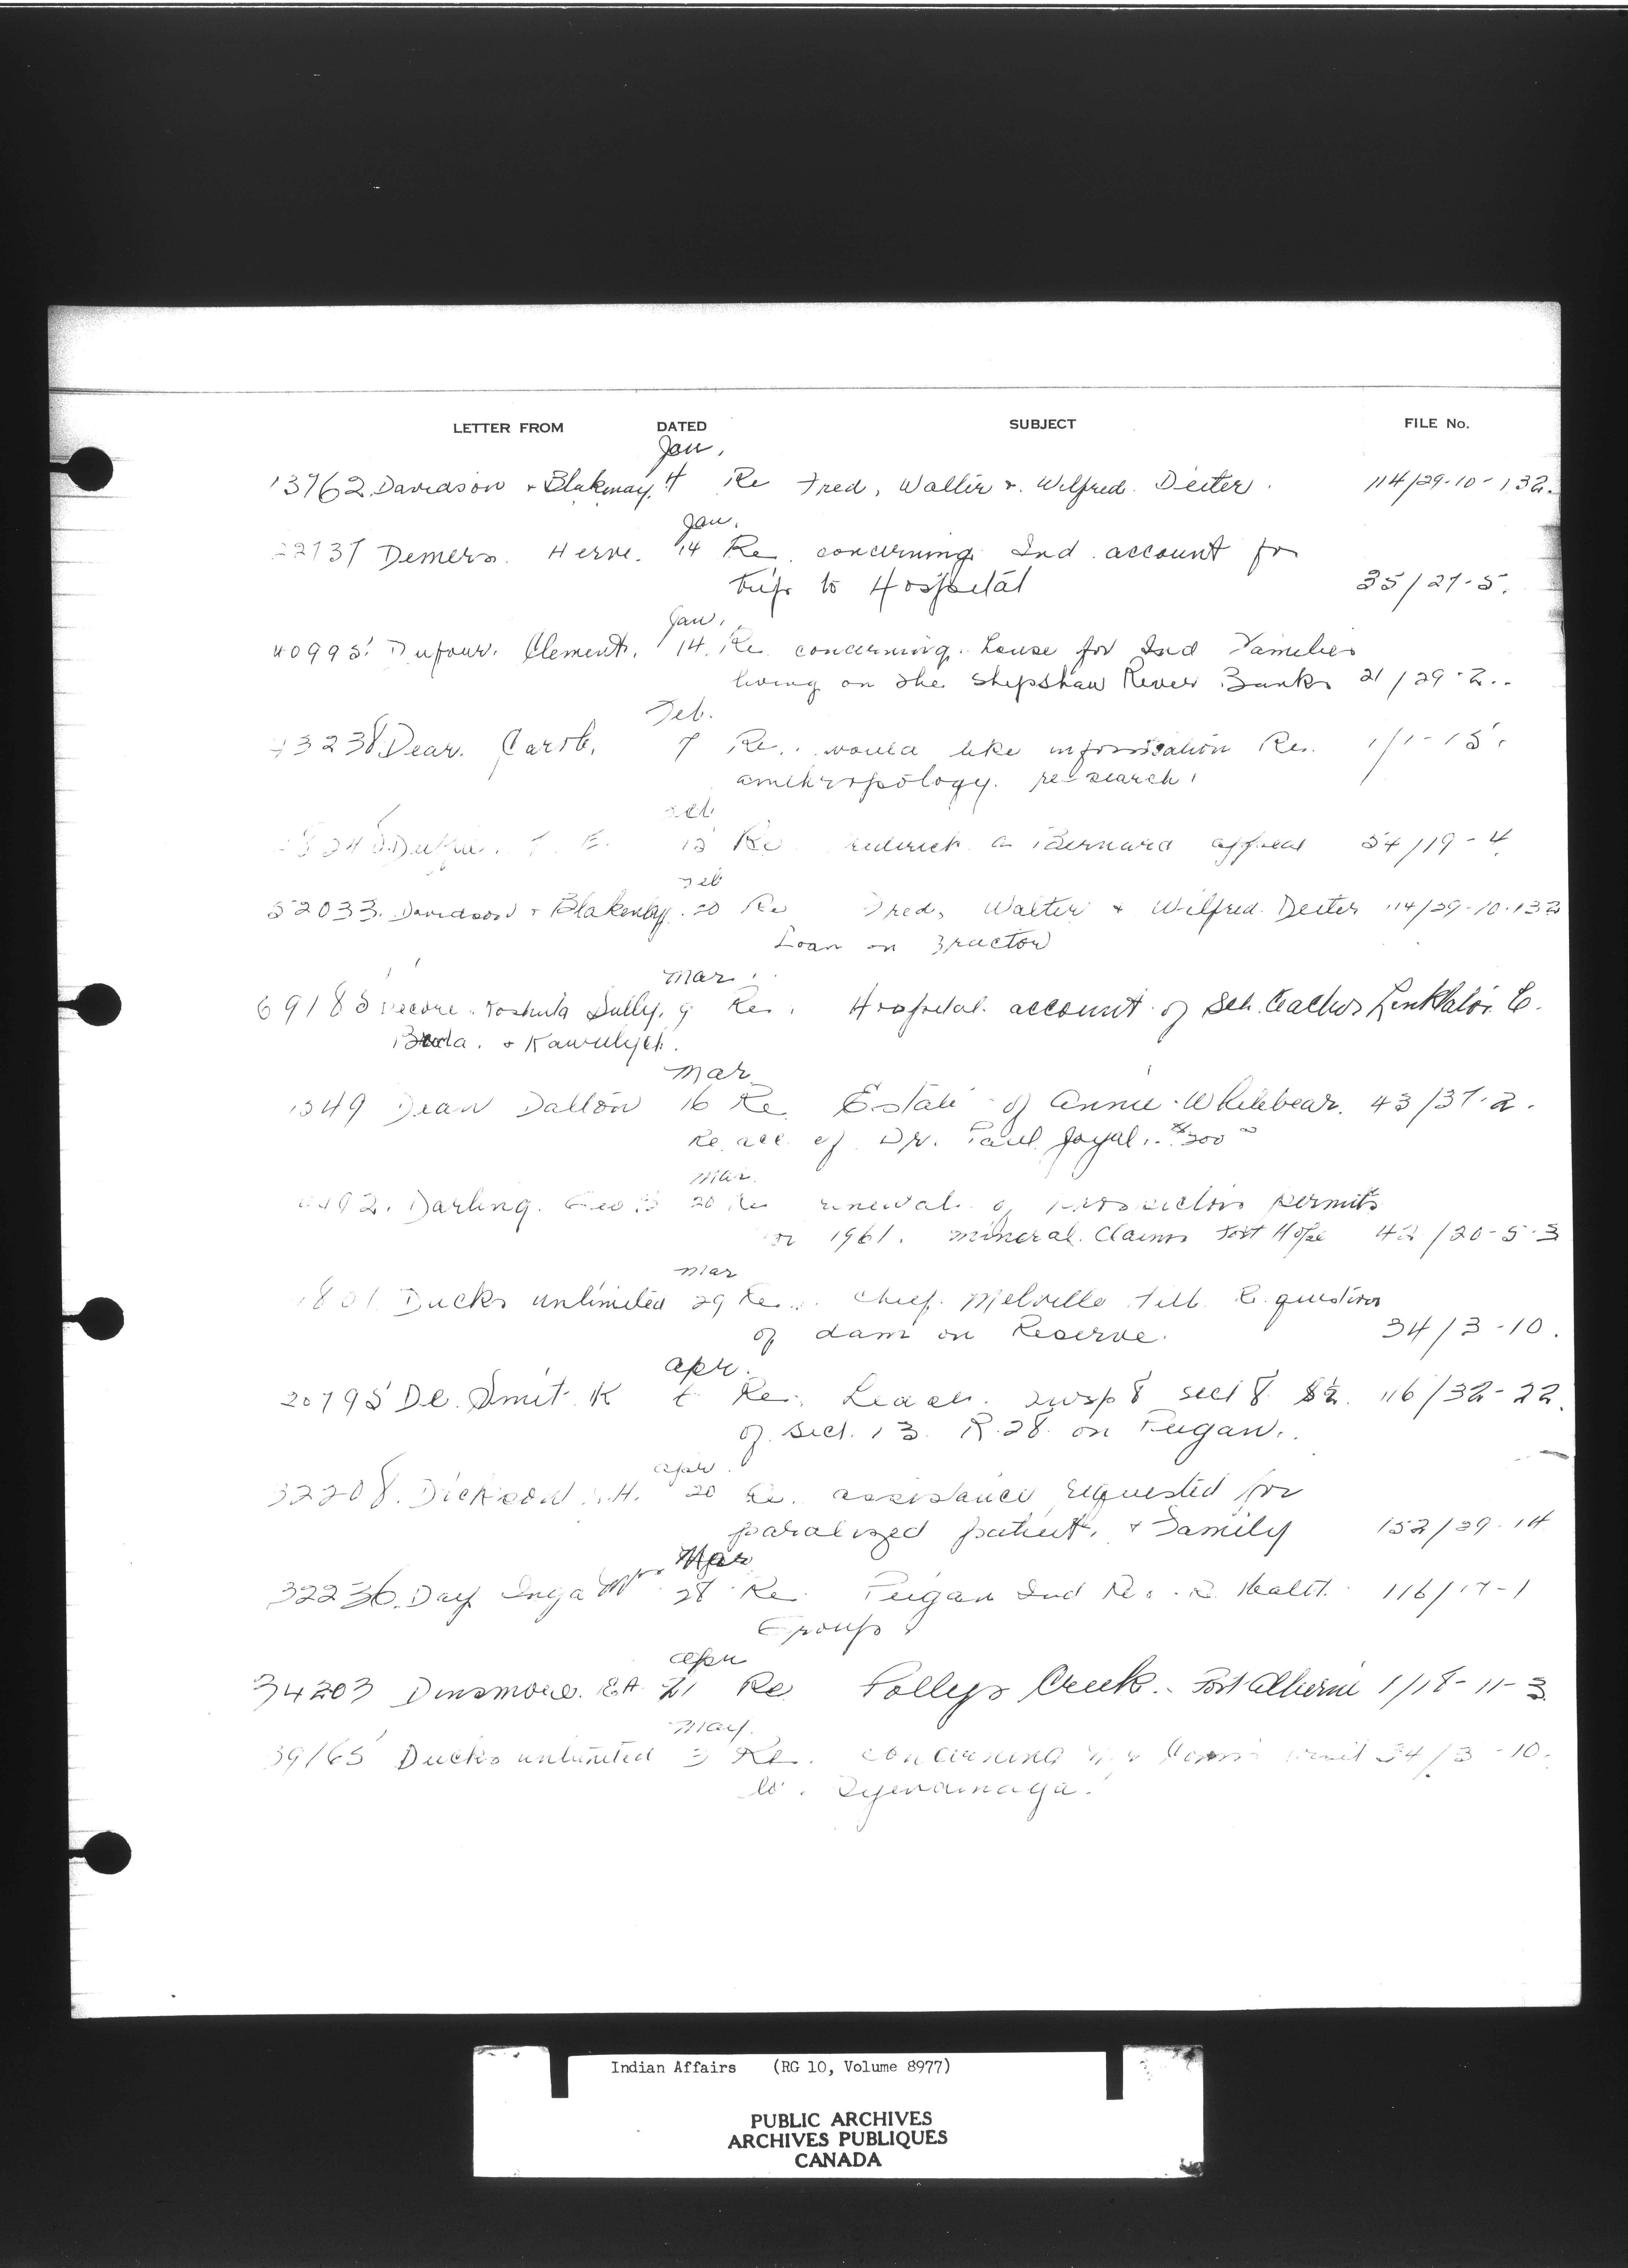 LETTER FROM DATED SUBJECT FILE No.
Jan.
13762 Davidson + Blakmay. 4 Re Fred, Walter + Wilfred Deiter. 114/29-10-132.
Jan.
Demers. Herve. 14 Re concerning Ind. account for
trip to Hospital 35/27-5.
Jan.
40995. Dufour. Clement. 14. Re concerning. house for Ind Families
living on the Shipshaw River Banks 21/29-2.
Feb.
3238 Dear. Carol. 7 Re. would like information Re. 1/1-15.
amthropology. research.
Feb
15 Re Bernard appeal 54/19-4
Feb
52033. Davidson + Blakenby. 20 Re Fred, Walter + Wilfred Deiter 114/29-10-132
Loan on Tractor
Mar.
6918 Sully. 9 Re. Hospital account of Sch. teacher Linklator E.
Mar
1349 Dean Dalton 16 Re Estate of Annie Whitebear. 43/37-2.
Re acc of Dr. Paul Joyal. $200
Mar.
Darling. Geo 20 Re renewal of permits
for 1961. mineral Claims Fort Hope 42/20-5-3
Mar
1801 Ducks unlimited 29 Re. Chief. Melville Hill. Re question
of dam on Reserve. 34/3-10.
Apr.
20795 De. Smit. K 6 Re. twsp 8 sect 8 S½. 116/32-22.
of sect. 13 R.28 on Peigan.
Apr.
32208. Dickson. H. 20 Re. assistance requested for
paralized patient. + Family 152/29-14
Mar
32236. Day Inga Mrs. 28 Re Peigan Ind Res. Re Healt. 116/17-1
Group
Apr
34203 Dinsmore. EA 21 Re Pollys Creek. Port Alberni 1/18-11-3
May.
39165 Ducks unlimited 3 Re. concerning visit 34/3-10.
to. Tyendinaga.
Indian Affairs (RG 10, Volume 8977)
PUBLIC ARCHIVES
ARCHIVES PUBLIQUES
CANADA